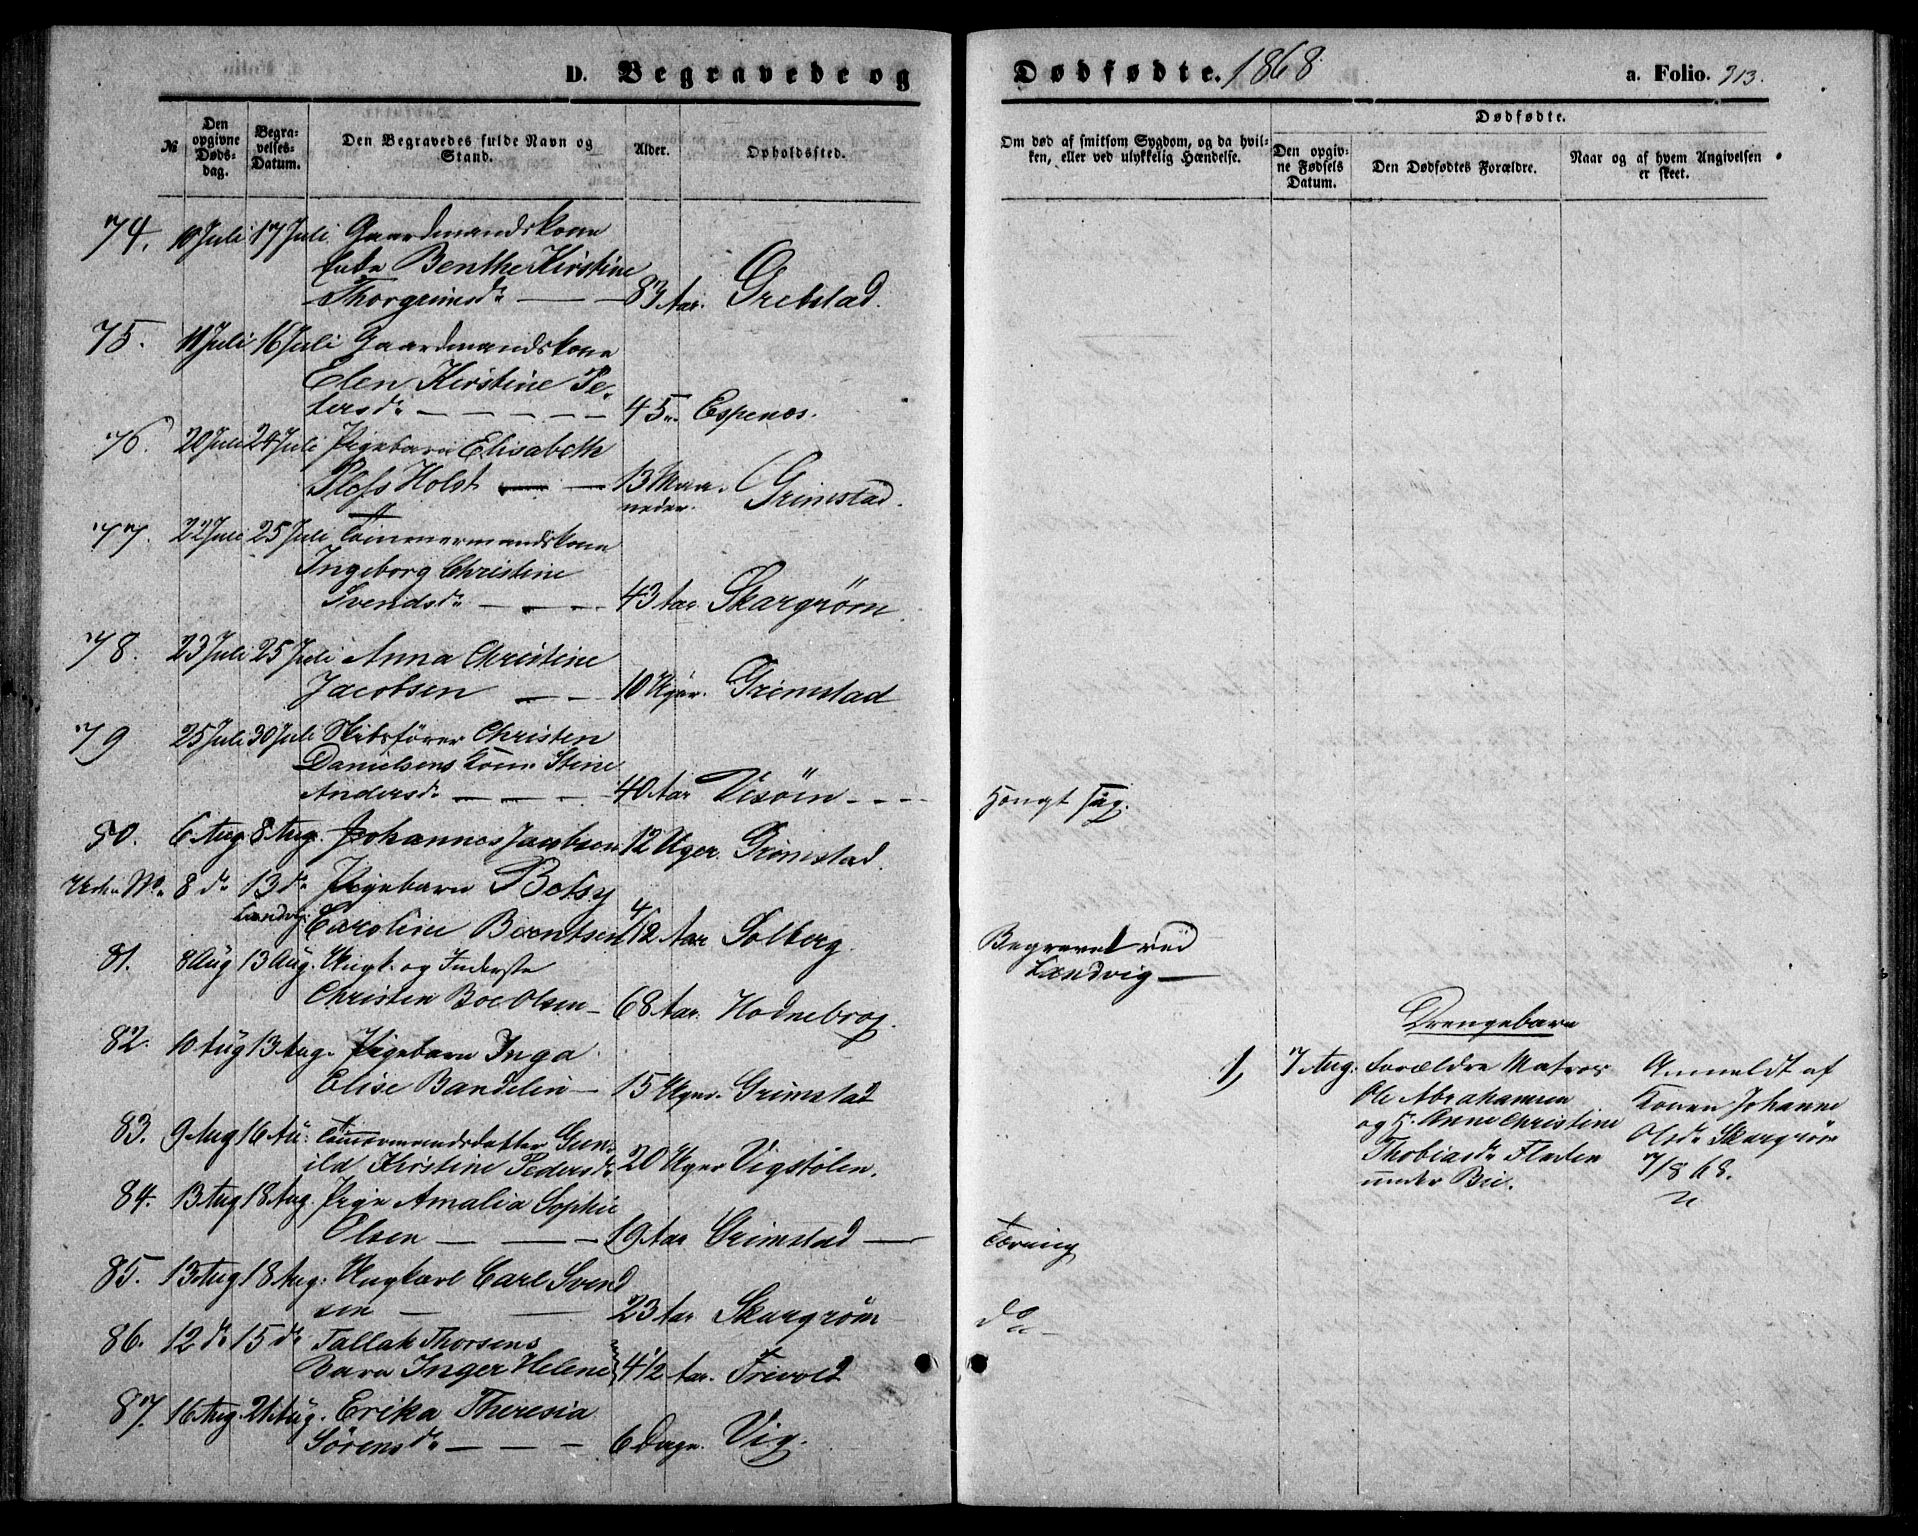 D. Begravede og
Dødfødte. 1868.
a. Folio. 313.
№
Den opgivne Døds-dag.
Begra-velses-Datum.
Den Begravedes fulde Navn og Stand.
Alder.
Opholdssted.
Om død af smitsom Sygdom, og da hvil-
ken, eller ved ulykkelig Hændelse.
Dødfødte.
Den opgiv-
ne Fødsels
Datum.
Den Dødfødtes Forældre.
Naar og af hvem Angivelsen
er skeet.
74. 10 Juli 17 Juli Gaardmandskone
Benthe Kirstine
Thorgrimsd. 83 Aar. Grebstad.
75. 11 Juli 16 Juli Gaardmandskone
Elen Kirstine Pe-
tersd. 45 " Espenæs.
76. 20 Juli 24 Juli Pigebarn Elisabeth
Pless Holst 13 Maa-
neder. Grimstad.
77. 22 Juli 25 Juli Tømmermandskone
Ingeborg Christine
Svendsd. 43 Aar. Skargrøm.
78. 23 Juli 25 Juli Anna Christine
Jacobsen 10 Uger. Grimstad
79 25 Juli 30 Juli Skibsfører Christen
Danielsens Kone Stine
Andersd. 40 Aar Vesøen
Hængt sig.
80. 6 Aug. 8 Aug. Johannes Jacobsen 12 Uger. Grimstad
Uden No. 8 do 13 do Pigebarn Betsy
Landvig. Caroline Berntsen 4/12 Aar Solberg.
Begravet ved
Landvig
81. 8 Aug 13 Aug. Ungk. og Inderste
Christen Boe Olsen 68 Aar. Hodnebrog.
82. 10 Aug 13 Aug. Pigebarn Inga
Elise Bandelin 15 Uger. Grimstad
Drengebarn
1, 7 Aug. Forældre Matros
Ole Abrahamsen
og H. Anne Christine
Thobiasd. Fladen
under Bie.
Anmeldt af
Konen Johanne
Olsd. Skargrøm
7/8 68.
83. 9 Aug 16 Au: Tømmermandsdatter Gun-
ild Kirstine Pedersd. 20 Uger Vigstølen.
84. 13 Aug 18 Aug. Pige Amalia Sophie
Olsen 19 Aar Grimstad
Tæring
85. 13 Aug 18 Aug: Ungkarl Carl Svend
sen 23 Aar Skargrøm
do
86. 12 do 15 do Tallak Thorsens
Barn Inger Helene 4 1/2 Aar. Frivold
87. 16 Aug. 21 Aug. Erika Theresia
Sørensd. 6 Dage. Vig.